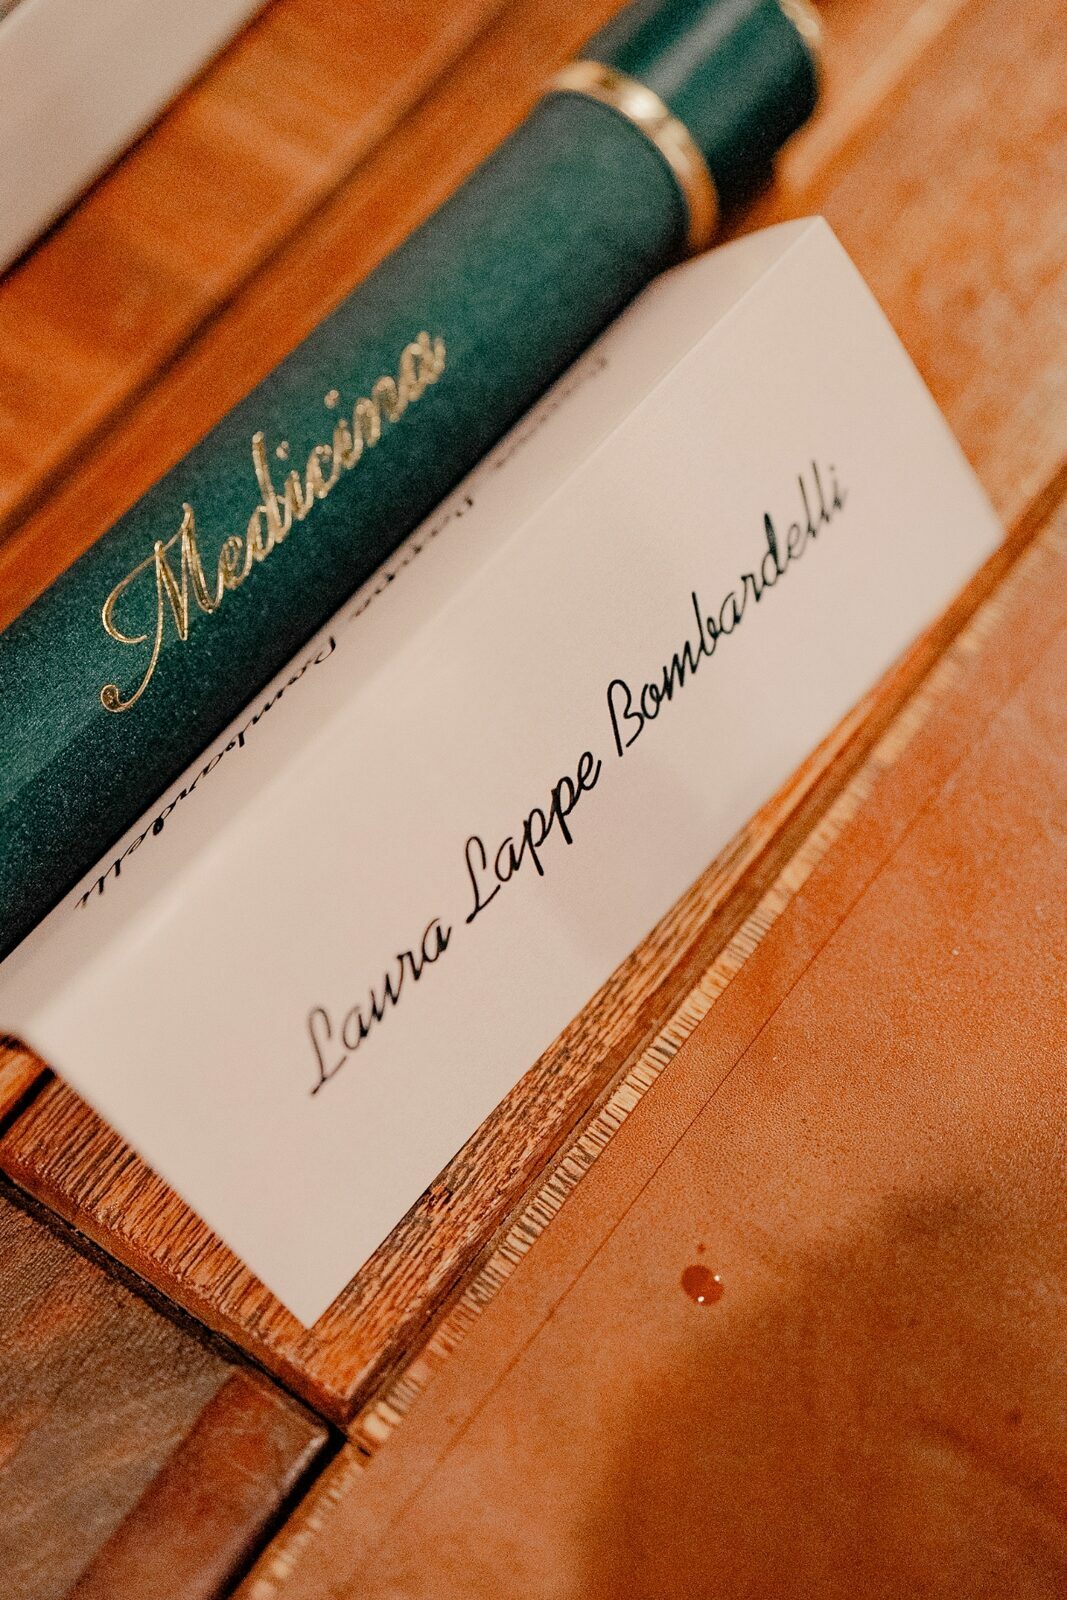 Medicina
Laura Lappe Bombardelli